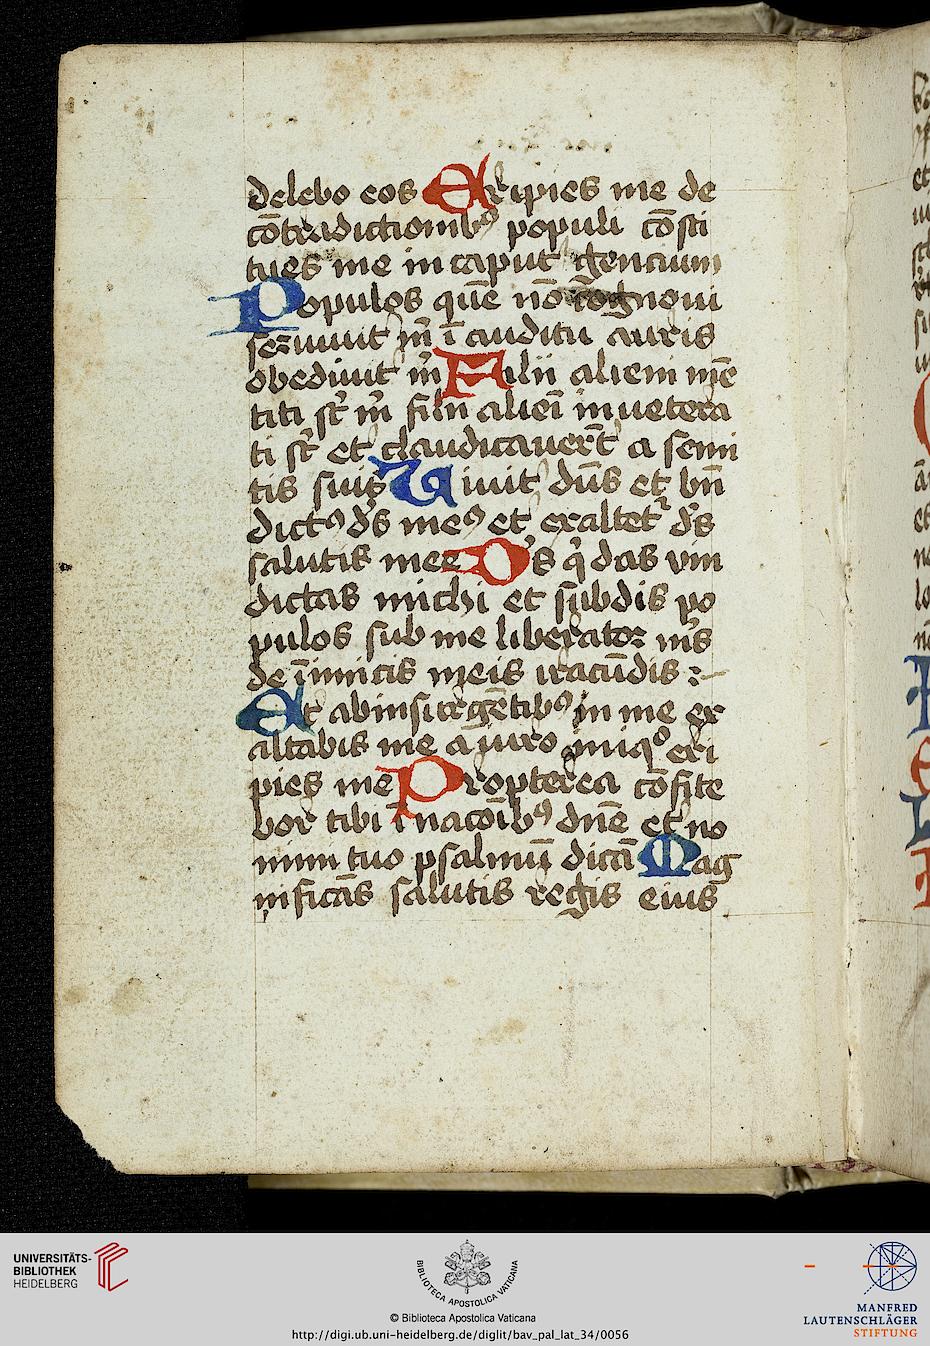 delebo eos Eripies me de
cōtradictionibꝰ populi cōsti
tues me in caput gencium
Populos quē nō cognoui
seruiuit m̄ ī auditu auris
obediuit m̄ Filii alieni mē
titi st̄ m̄ filii alieī inuetera
ti st̄ et claudicauer̄t a semi
tis suis Uiuit dn̄s et bn̄
dictꝰ d̄s meꝰ et exaltet᷑ d̄s
salutis mee D̄s q̄ das vin
dictas michi et subdis po
pulos sub me liberator m̄s
de īimicis meis iracūdis :
Et ab insurgētibꝰ in me ex
altabis me a viro iniqͦ eri
pies me Propterea cōfite
bor tibi ī nacōibꝰ dn̄e et no
mini tuo psalmū dicā Mag
nificās salutis regis eius
UNIVERSITÄTS-
BIBLIOTHEK
HEIDELBERG
BIBLIOTECA APOSTOLICA VATICANA
© Biblioteca Apostolica Vaticana
http://digi.ub.uni-heidelberg.de/diglit/bav_pal_lat_34/0056
MANFRED
LAUTENSCHLÄGER
STIFTUNG